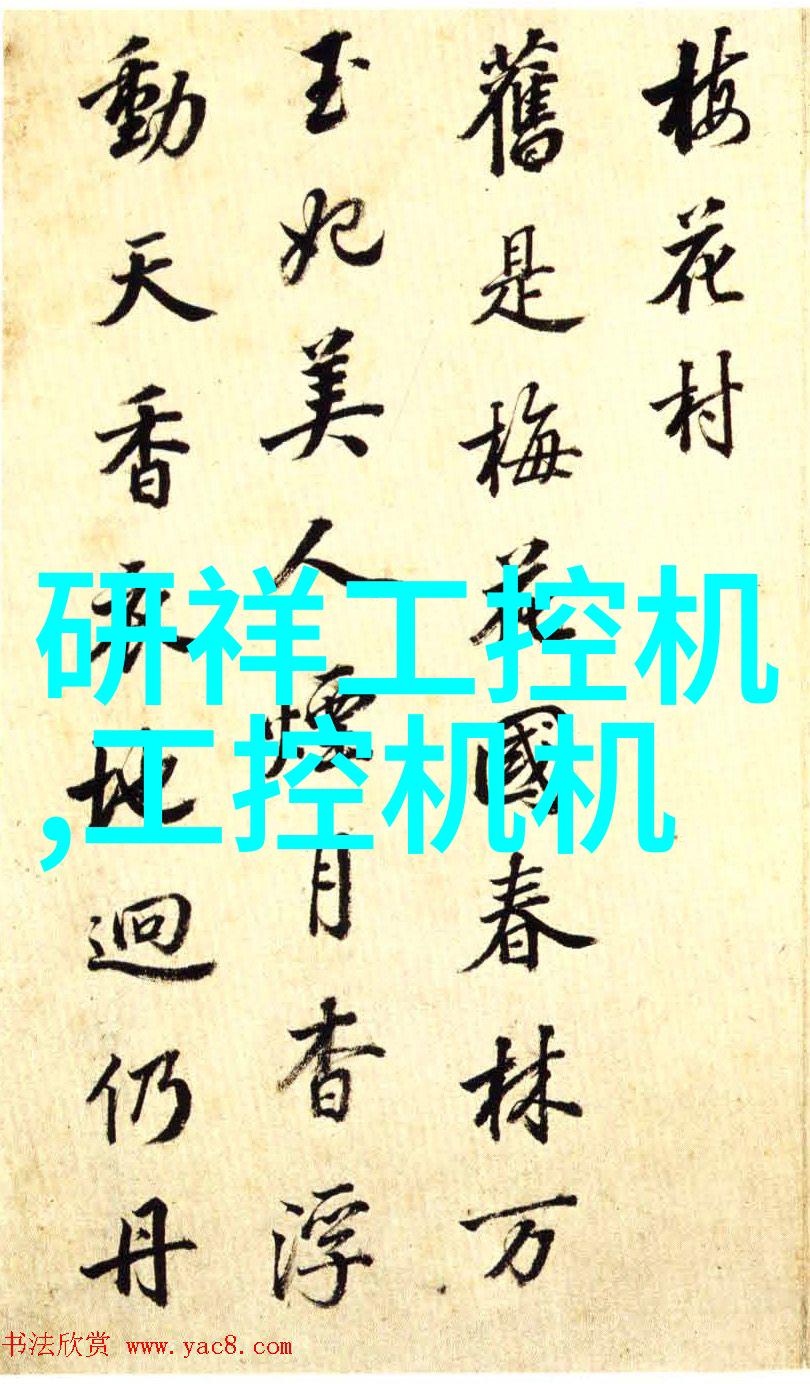 梅花村
舊是梅花國春林万
玉妃美人煙月杳浮
動天香地迥仍丹
研祥工控机
,工控机机
书法欣赏 www.yac8.com